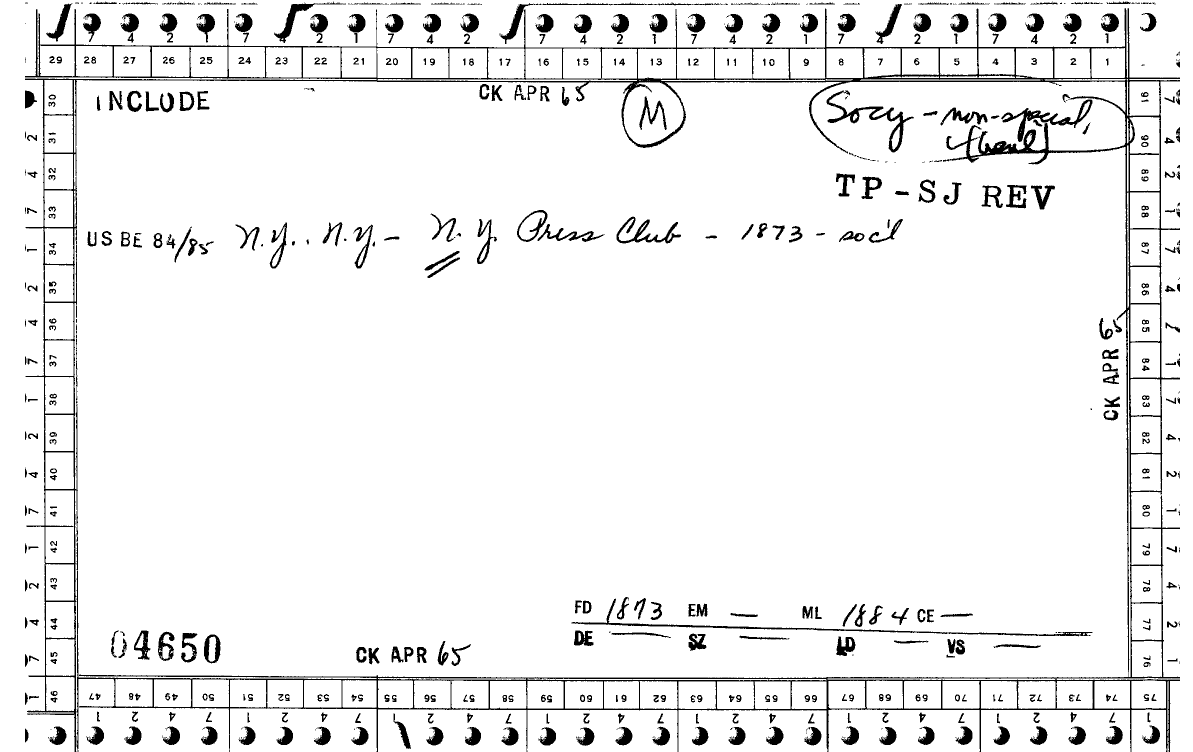 7 4 2 1 7 4 2 1 7 4 2 1 7 4 2 1 7 4 2 1 7 4 2 1
29 28 27 26 25 24 23 22 21 20 19 18 17 16 15 14 13 12 11 10 9 8 7 6 5 4 3 2 1
INCLUDE
CK APR 65
M
Socy - non-special,
TP-SJ REV
US BE 84/85 N.Y., N.Y. - N.Y. Press Club - 1873 - soc'l
CK APR 65
FD 1873 EM — ML 1884 CE —
DE — SZ — LD — VS —
04650
CK APR 65
30 31 32 33 34 35 36 37 38 39 40 41 42 43 44 45 46
91 90 89 88 87 86 85 84 83 82 81 80 79 78 77 76
47 48 49 50 51 52 53 54 55 56 57 58 59 60 61 62 63 64 65 66 67 68 69 70 71 72 73 74 75